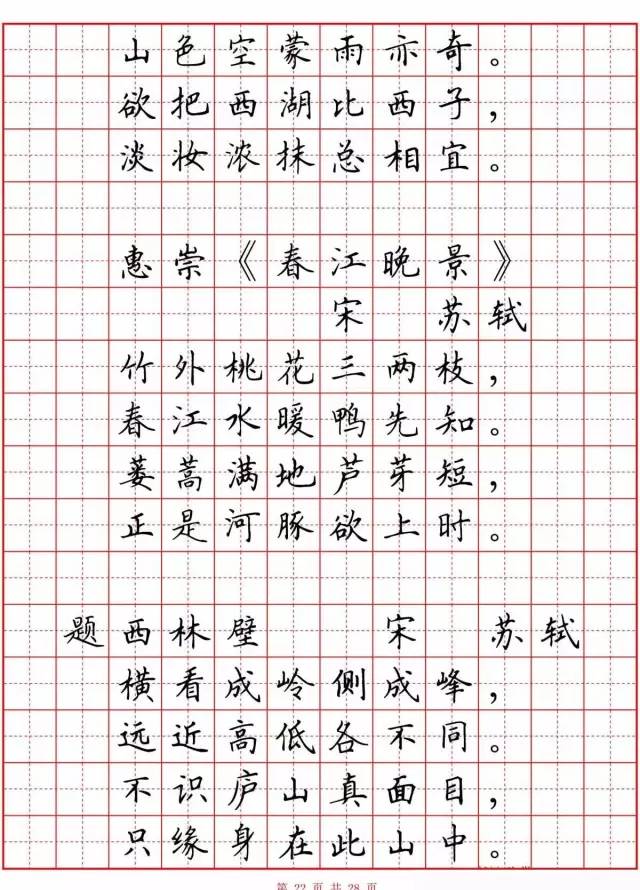 山色空蒙雨亦奇。
欲把西湖比西子，
淡妆浓抹总相宜。
惠崇《春江晚景》
宋 苏轼
竹外桃花三两枝，
春江水暖鸭先知。
蒌蒿满地芦芽短，
正是河豚欲上时。
题西林壁 宋 苏轼
横看成岭侧成峰，
远近高低各不同。
不识庐山真面目，
只缘身在此山中。
第 22 页 共 28 页